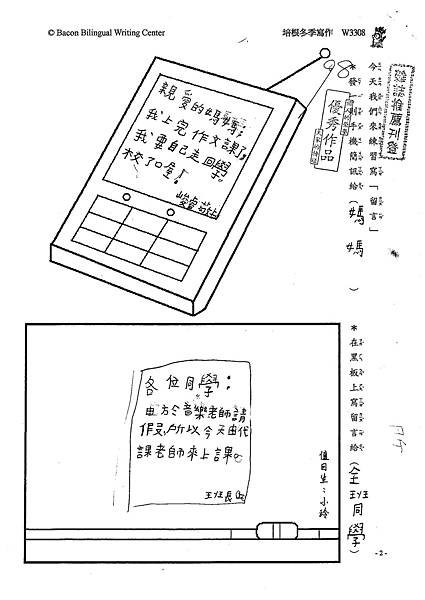 © Bacon Bilingual Writing Center
培根冬季寫作 W3308
98
優秀作品
今天我們來練習寫「留言」
*發一則手機簡訊給(媽媽)
親愛的媽媽:
我上完作文課了,
我要自己走回學
校了喔!
峻睿敬上
*在黑板上寫留言給(全班同學)
各位同學:
由於音樂老師請
作假,所以今天由代
課老師來上課。
班長留
值日生:小玲
-2-